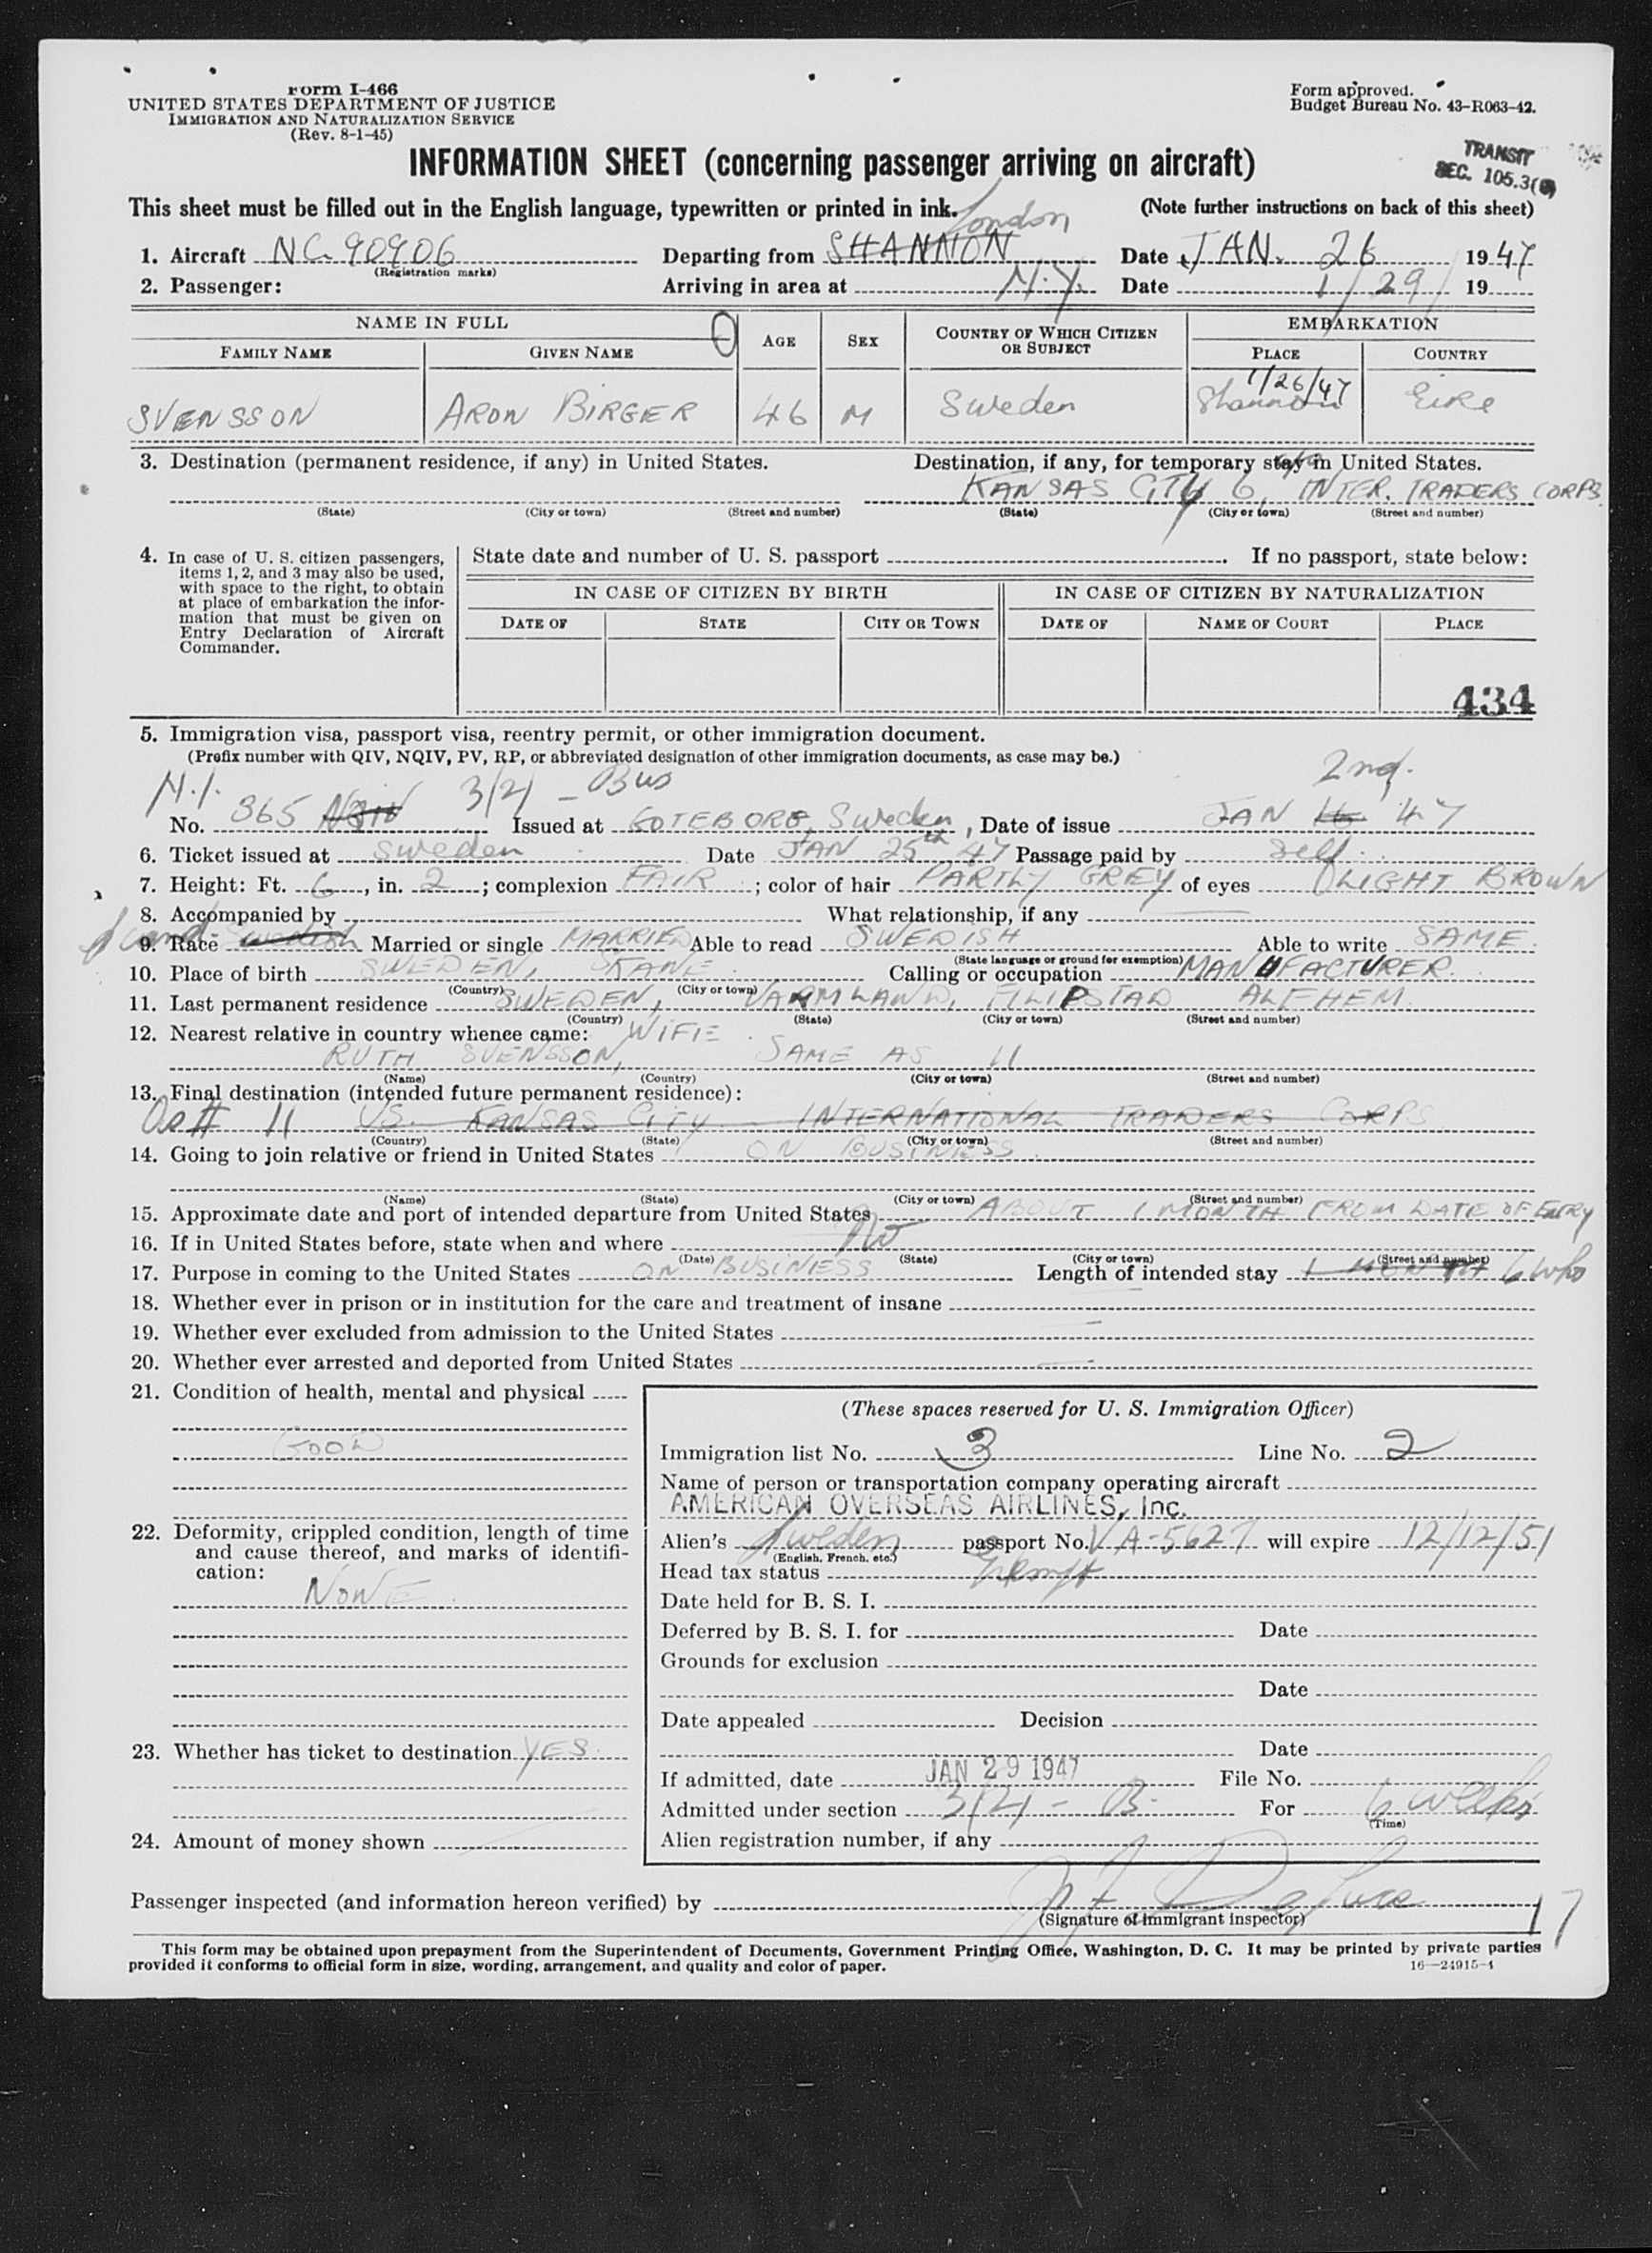 Form I-466
UNITED STATES DEPARTMENT OF JUSTICE
IMMIGRATION AND NATURALIZATION SERVICE
(Rev. 8-1-45)
Form approved.
Budget Bureau No. 43-R063-42.
TRANSIT
SEC. 105.3(
INFORMATION SHEET (concerning passenger arriving on aircraft)
This sheet must be filled out in the English language, typewritten or printed in ink. (Note further instructions on back of this sheet)
London
1. Aircraft NC 90906 Departing from SHANNON Date JAN. 26 1947
(Registration marks)
2. Passenger: Arriving in area at N.Y. Date 1/29/ 19
NAME IN FULL AGE SEX COUNTRY OF WHICH CITIZEN OR SUBJECT EMBARKATION
FAMILY NAME GIVEN NAME PLACE COUNTRY
1/26/47
SVENSSON ARON BIRGER 46 M Sweden Shannon EIRE
3. Destination (permanent residence, if any) in United States. Destination, if any, for temporary stay in United States.
KANSAS CITY 6, INTER. TRADERS CORPS
(State) (City or town) (Street and number) (State) (City or town) (Street and number)
4. In case of U. S. citizen passengers, items 1, 2, and 3 may also be used, with space to the right, to obtain at place of embarkation the information that must be given on Entry Declaration of Aircraft Commander.
State date and number of U. S. passport . If no passport, state below:
IN CASE OF CITIZEN BY BIRTH IN CASE OF CITIZEN BY NATURALIZATION
DATE OF STATE CITY OR TOWN DATE OF NAME OF COURT PLACE
434
5. Immigration visa, passport visa, reentry permit, or other immigration document.
(Prefix number with QIV, NQIV, PV, RP, or abbreviated designation of other immigration documents, as case may be.)
N.I. 3(2) - Bus 2nd.
No. 365 Issued at GOTEBORG, Sweden, Date of issue JAN 16 47
6. Ticket issued at Sweden Date JAN 25th 47 Passage paid by Self
7. Height: Ft. 6, in. 2; complexion FAIR; color of hair PARTLY GREY of eyes LIGHT BROWN
8. Accompanied by What relationship, if any
9. Race Scand. Swedish Married or single MARRIED Able to read SWEDISH Able to write SAME
(State language or ground for exemption)
10. Place of birth SWEDEN, SKANE Calling or occupation MANUFACTURER
(Country) (City or town)
11. Last permanent residence SWEDEN, VARMLAND, FILIPSTAD ALFHEM
(Country) (State) (City or town) (Street and number)
12. Nearest relative in country whence came: WIFE
RUTH SVENSSON, SAME AS 11
(Name) (Country) (City or town) (Street and number)
13. Final destination (intended future permanent residence):
As # 11 US. KANSAS CITY INTERNATIONAL TRADERS CORPS
(Country) (State) (City or town) (Street and number)
14. Going to join relative or friend in United States ON BUSINESS
(Name) (State) (City or town) (Street and number)
15. Approximate date and port of intended departure from United States ABOUT 1 MONTH FROM DATE OF ENTRY
16. If in United States before, state when and where No
(Date) (State) (City or town) (Street and number)
17. Purpose in coming to the United States ON BUSINESS Length of intended stay 1 MONTH 6 wks
18. Whether ever in prison or in institution for the care and treatment of insane
19. Whether ever excluded from admission to the United States
20. Whether ever arrested and deported from United States
21. Condition of health, mental and physical
GOOD
22. Deformity, crippled condition, length of time and cause thereof, and marks of identification:
NONE
23. Whether has ticket to destination YES
24. Amount of money shown
(These spaces reserved for U. S. Immigration Officer)
Immigration list No. 3 Line No. 2
Name of person or transportation company operating aircraft
AMERICAN OVERSEAS AIRLINES, Inc.
Alien's Sweden passport No. VA-5627 will expire 12/12/51
(English, French, etc.)
Head tax status Exempt
Date held for B. S. I.
Deferred by B. S. I. for Date
Grounds for exclusion
Date
Date appealed Decision
Date
If admitted, date JAN 29 1947 File No.
Admitted under section 3(2) - B. For 6 weeks
(Time)
Alien registration number, if any
Passenger inspected (and information hereon verified) by
(Signature of immigrant inspector)
17
This form may be obtained upon prepayment from the Superintendent of Documents, Government Printing Office, Washington, D. C. It may be printed by private parties
provided it conforms to official form in size, wording, arrangement, and quality and color of paper.
16—24915-1